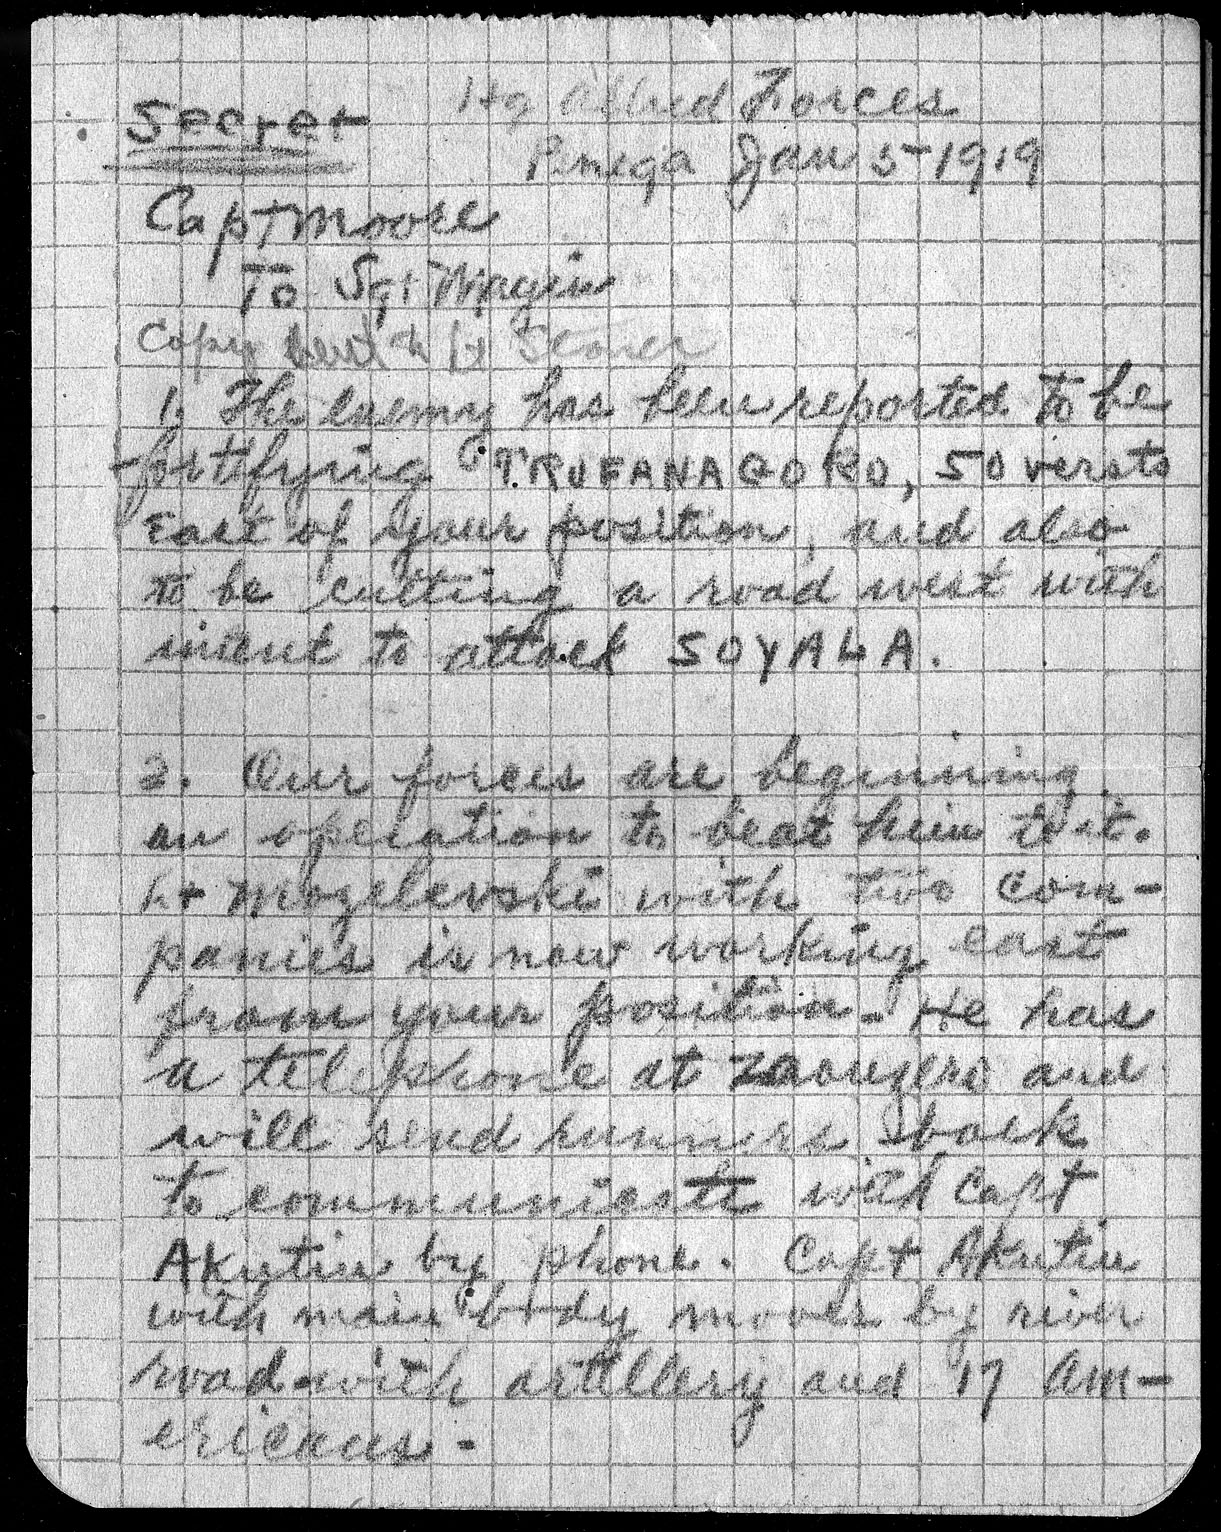 Hq Allied Forces
Secret
Pinega Jan 5-1919
Capt Moore
To Sgt
Copy sent to Lt Stoner
1. The enemy has been reported to be
fortifying TRUFANAGORO, 50 versts
East of your position, and also
to be cutting a road west with
intent to attack SOYALA.
2. Our forces are beginning
an operation to beat him to it.
Lt Mozelevski with two com-
panies is now working east
from your position. He has
a telephone at and
will send runners back
to communicate with Capt
Akutin by phone. Capt Akutin
with main body moves by river
road with artillery and 17 Am-
ericans -